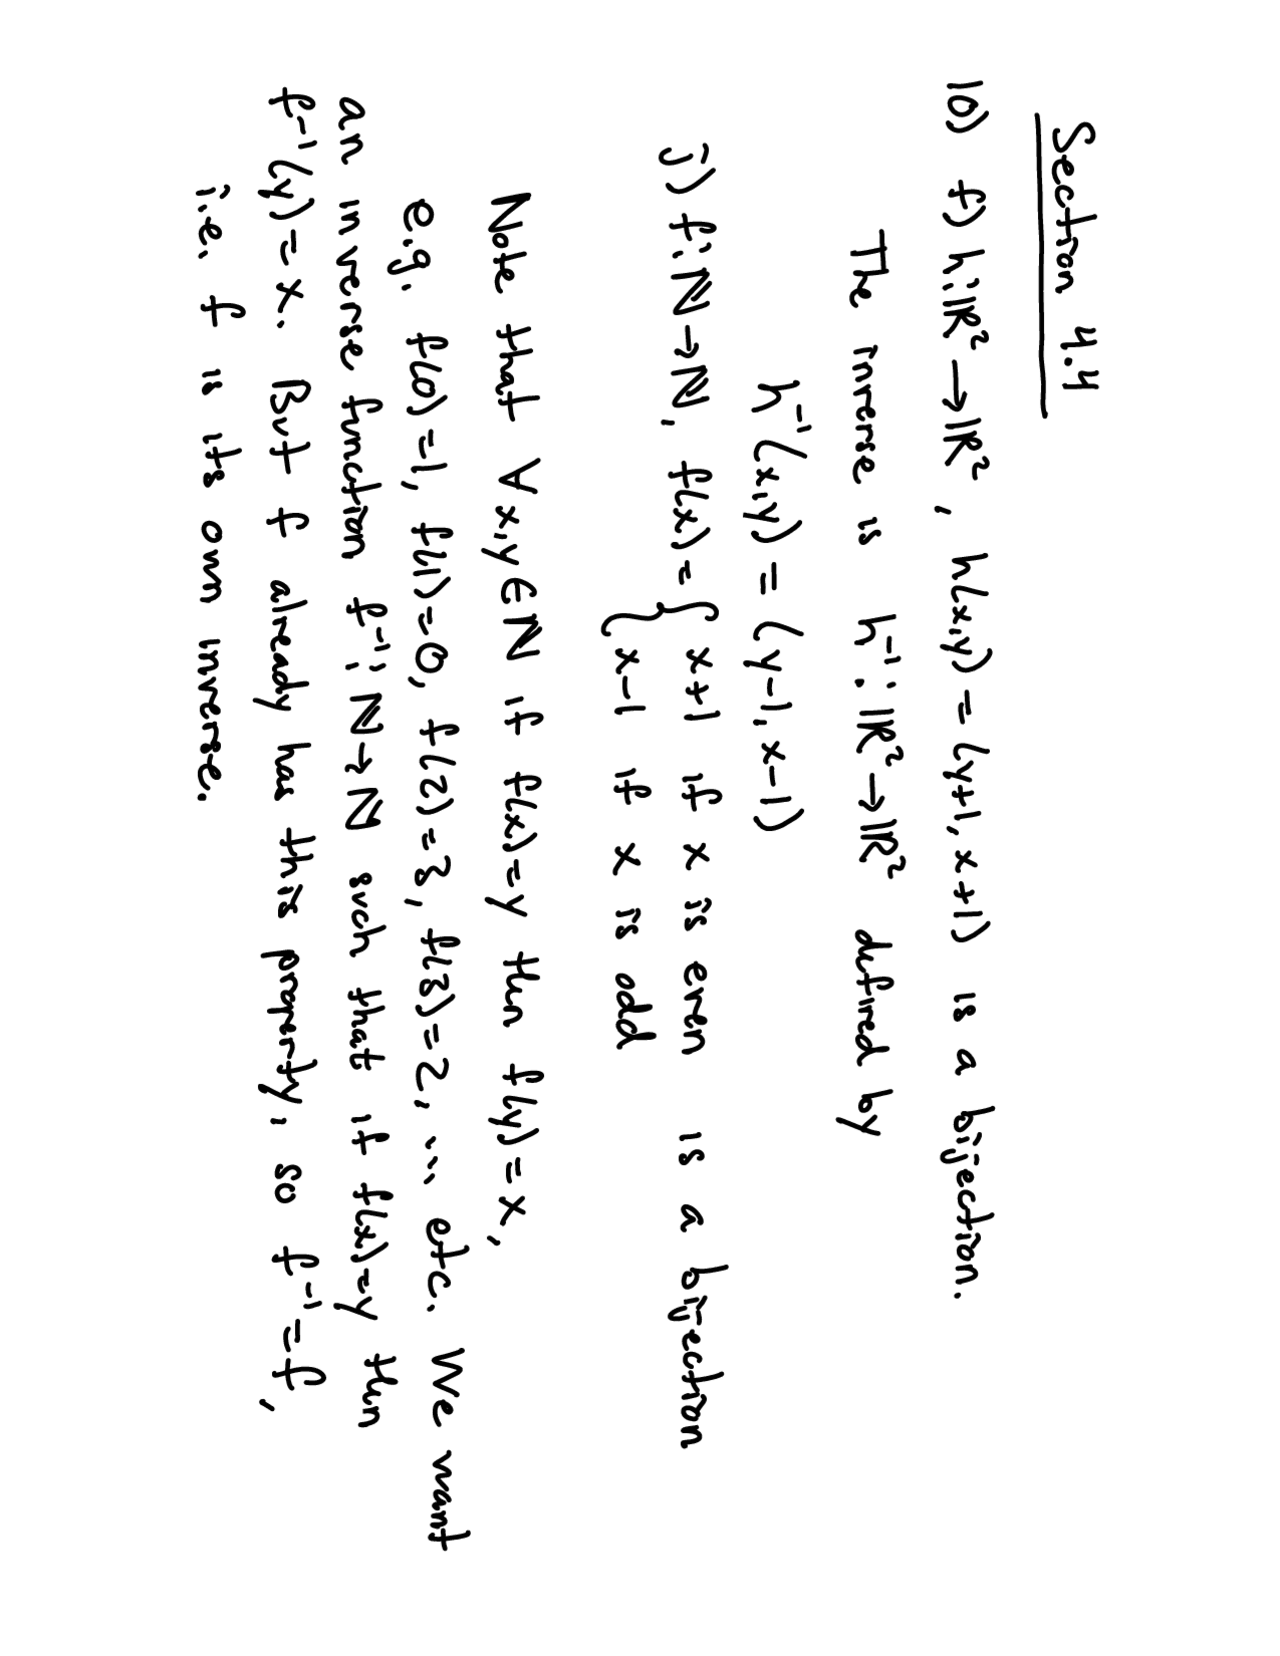 Section 4.4
10) f) h:ℝ²→ℝ², h(x,y) = (y+1, x+1) is a bijection.
The inverse is h⁻¹: ℝ²→ℝ² defined by
h⁻¹(x,y) = (y-1, x-1)
j) f:ℕ→ℕ, f(x) = { x+1 if x is even is a bijection
{ x-1 if x is odd
Note that ∀x,y∈ℕ if f(x)=y then f(y)=x,
e.g. f(0)=1, f(1)=0, f(2)=3, f(3)=2, ... etc. We want
an inverse function f⁻¹: ℕ→ℕ such that if f(x)=y then
f⁻¹(y)=x. But f already has this property, so f⁻¹=f,
i.e. f is its own inverse.